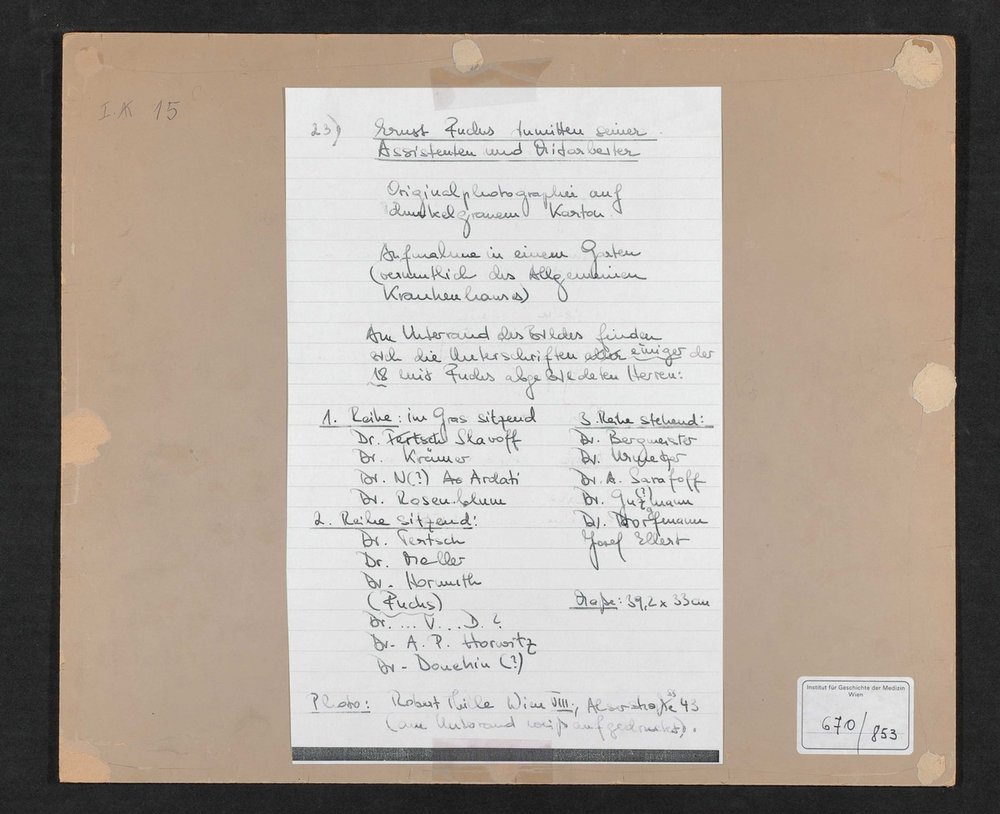 I. AK 15
23) Ernst Fuchs inmitten seiner
Assistenten und Mitarbeiter
Originalphotographie auf
dunkelgrauem Karton
Aufnahme in einem Garten
(vermutlich des Allgemeinen
Krankenhauses)
Am Unterrand des Bildes finden
sich die Unterschriften aller einiger der
18 mit Fuchs abgebildeten Herren:
1. Reihe: im Gras sitzend
Dr. Tertsch Slavoff
Dr. Krämer
Dr. N(?) Ao Ardati
Dr. Rosenblum
2. Reihe sitzend:
Dr. Tertsch
Dr. Meller
Dr. Hormuth
(Fuchs)
Dr. ... V... D. ?
Dr. A. P. Horwitz
Dr. Donehin (?)
3. Reihe stehend:
Dr. Bergmeister
Dr.
Dr. A. Sarafoff
Dr. Gutzmann (?)
Dr.
Josef Ellert
Maße: 39,2 x 33 cm
Photo: Robert Wien VIII., Alserstraße 43
(am Unterrand weiß aufgedruckt).
Institut für Geschichte der Medizin
Wien
670/853